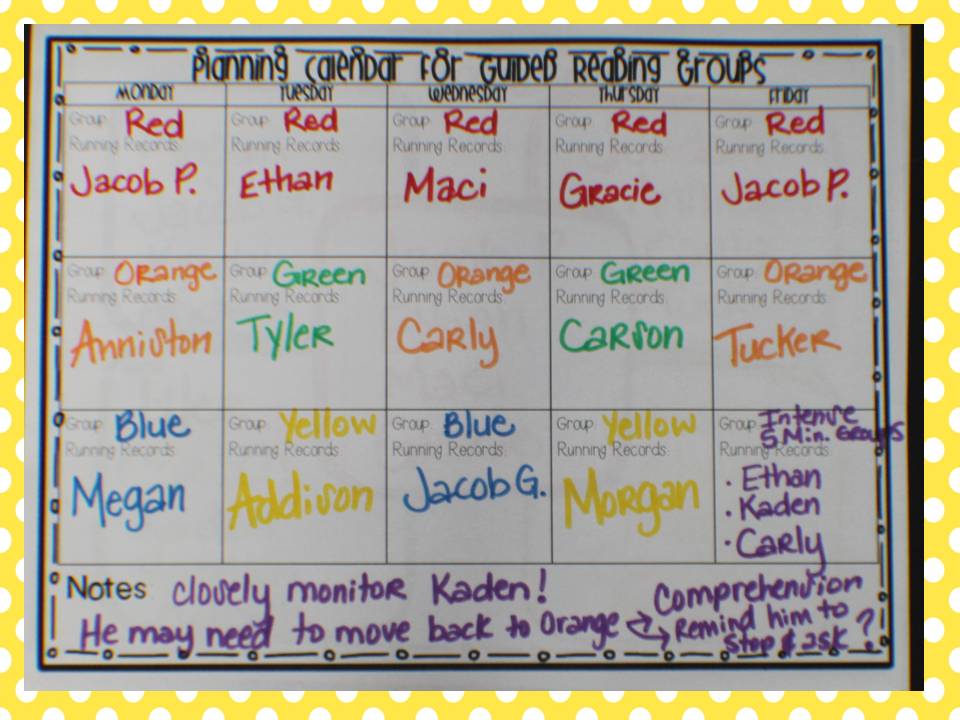 Planning Calendar for Guided Reading Groups
Monday Tuesday Wednesday Thursday Friday
Group Red Group Red Group Red Group Red Group Red
Running Records: Running Records: Running Records: Running Records: Running Records:
Jacob P. Ethan Maci Gracie Jacob P.
Group Orange Group Green Group Orange Group Green Group Orange
Running Records: Running Records: Running Records: Running Records: Running Records:
Anniston Tyler Carly Carson Tucker
Group Blue Group Yellow Group Blue Group Yellow Group Intense
5 Min. Groups
Running Records: Running Records: Running Records: Running Records: Running Records:
Megan Addison Jacob G. Morgan · Ethan
· Kaden
· Carly
Notes closely monitor Kaden!
He may need to move back to Orange → Comprehension
→ Remind him to
stop & ask ?